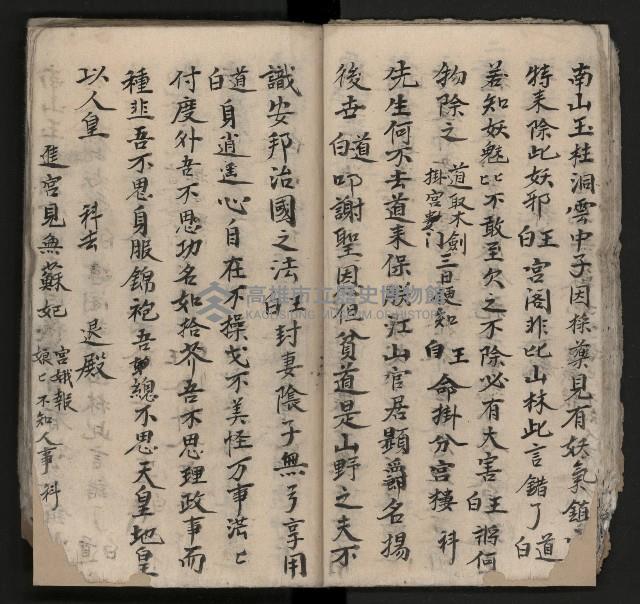 南山玉柱洞雲中子因採藥見有妖氣鎖
特来除此妖邪 王白 宮閣非比山林此言錯了 道白
若知妖魅匕不敢至欠之不除必有大害 王白 將何
物除之 道取木劍掛宮門 三日便知 王白 命掛分宮樓 科
先生何不去道来保朕江山官居顕爵名揚
後世 道白 叩謝聖因但貧道是山野之夫不
識安邦治國之法 王白 封妻隂子無亨用
道白 身逍遥心自在不操戈不美怪万事洪匕
付度外吾不思功名如拾芥吾不思理政事而
種韭吾不思身服錦袍吾總不思天皇地皇
以人皇 科去 退殿
進宮見無蘇妃 宮娥報娘匕不知人事 科
高雄市立歷史博物館
KAOHSIUNG MUSEUM OF HISTORY